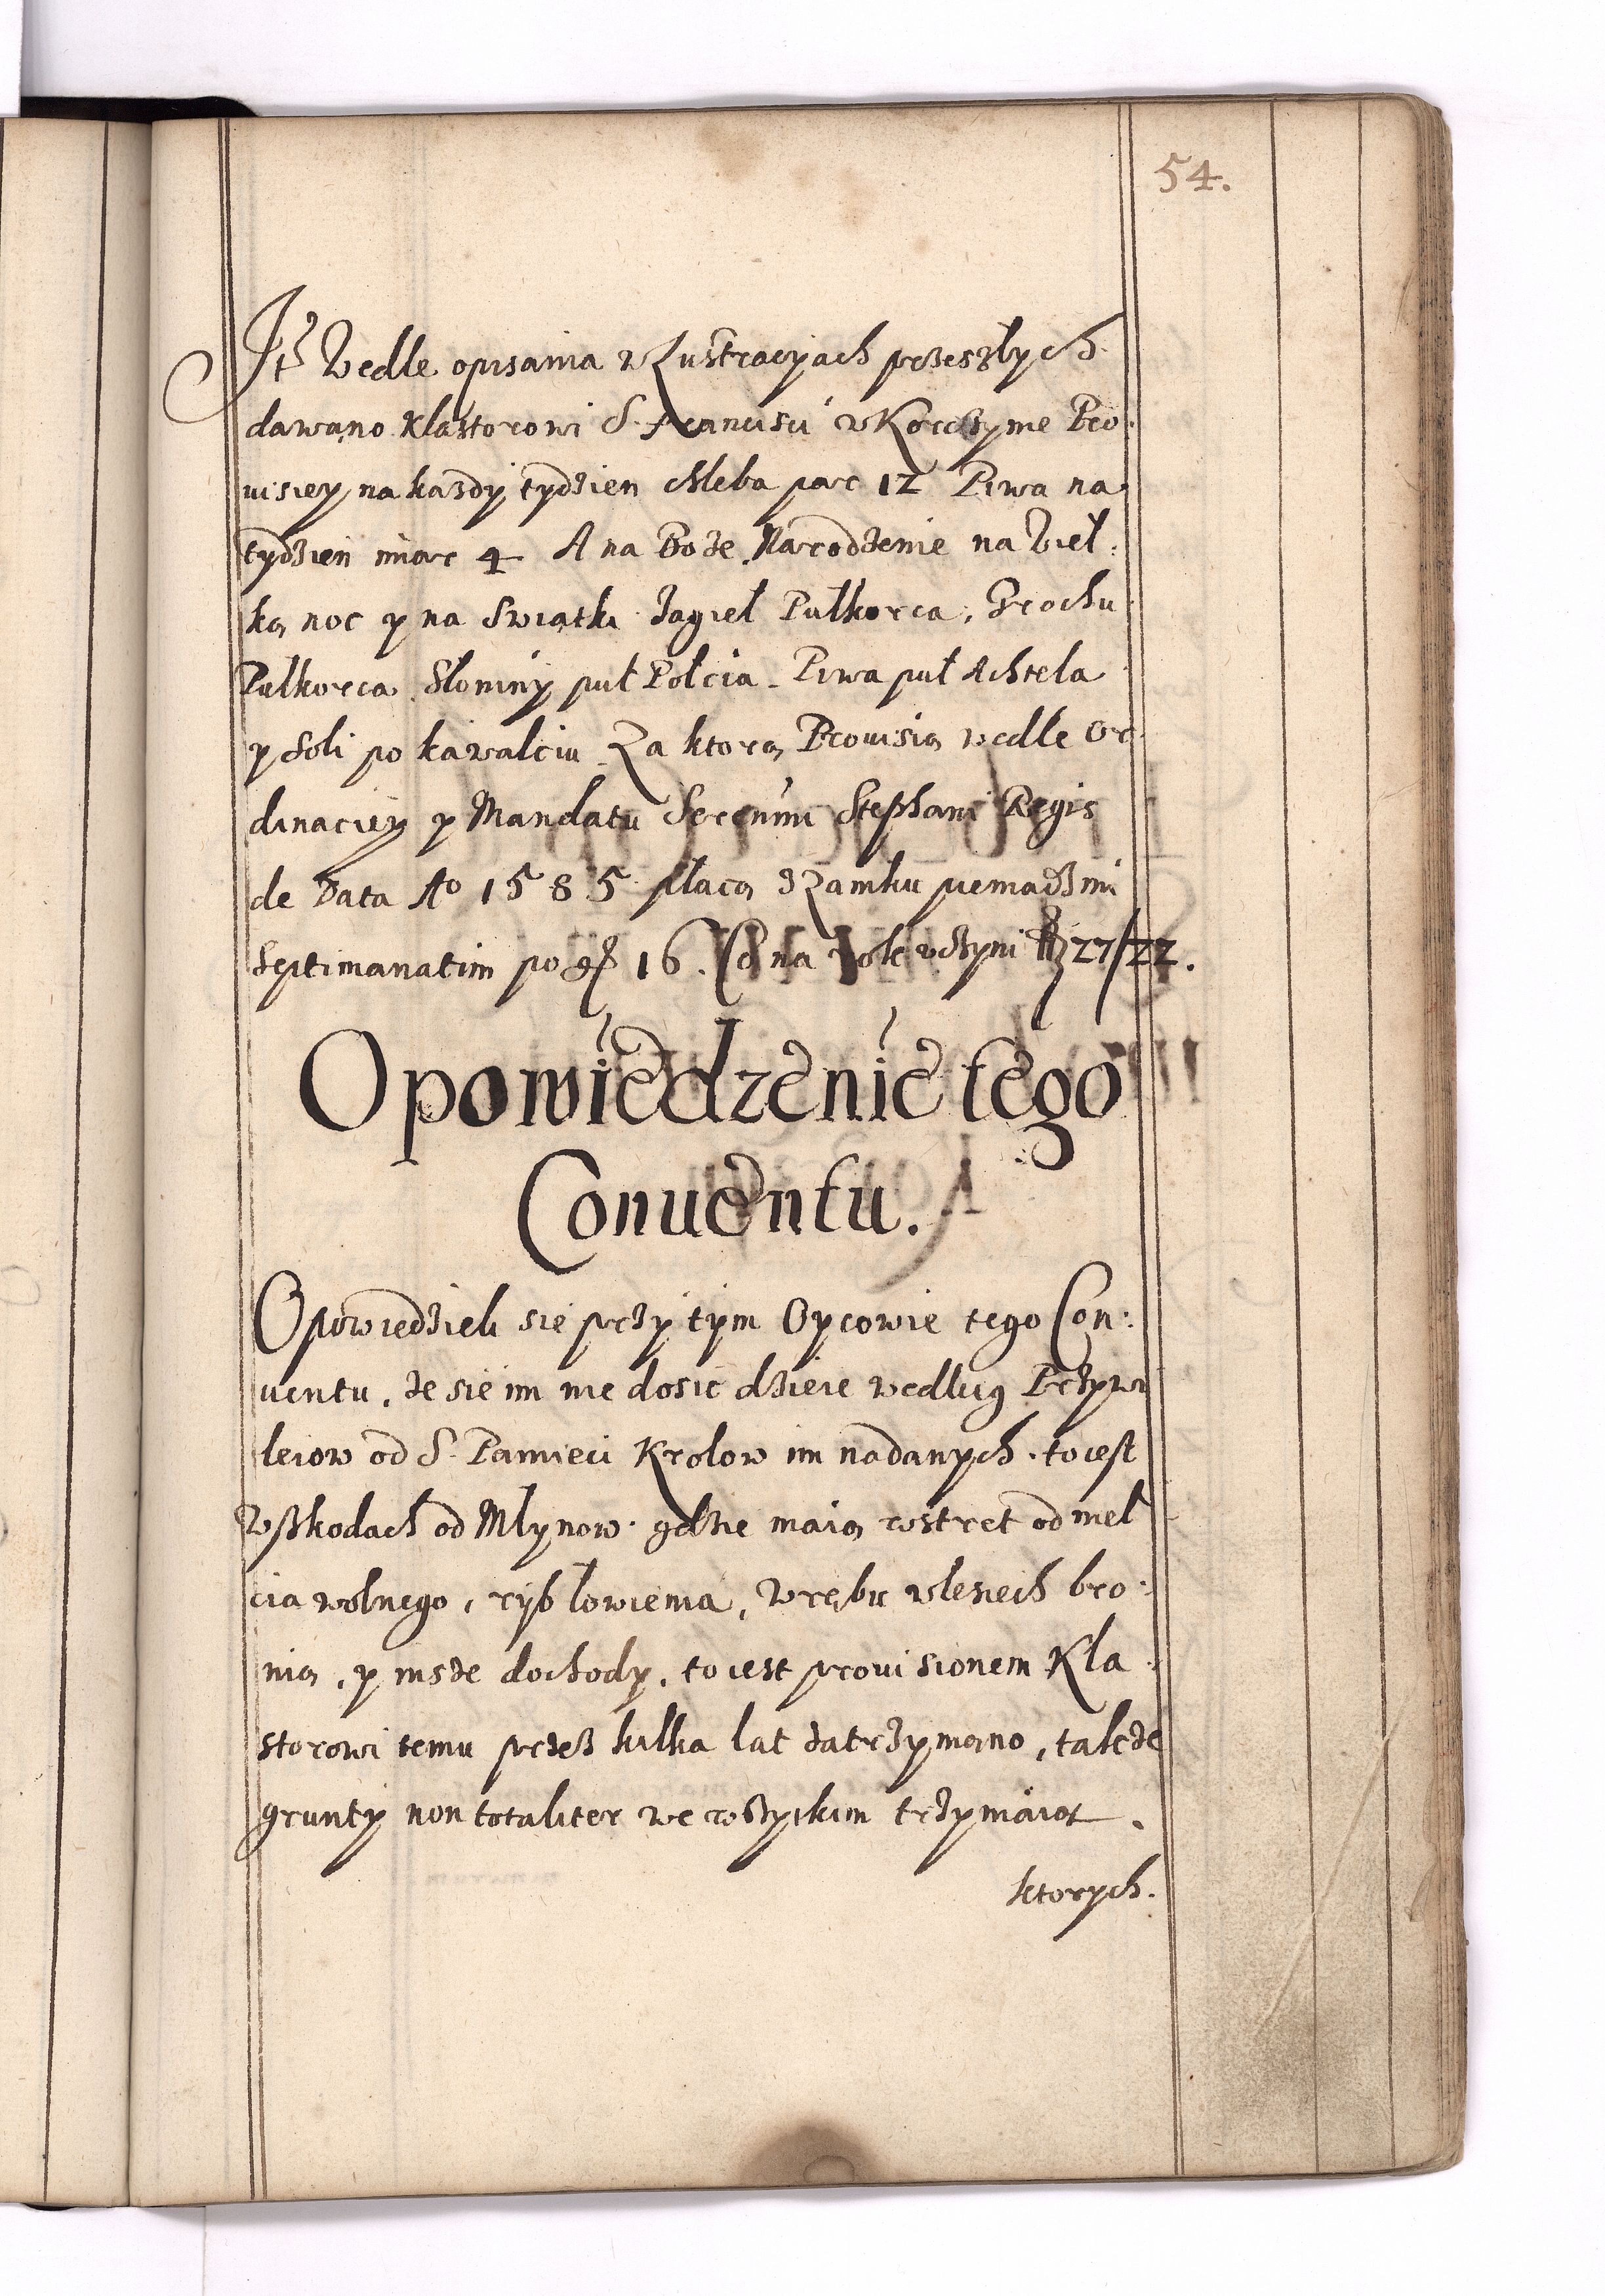 54.
It Wedle opisania w Lustracyjach przeszłych
dawano Klasztorowi S. Francisci w Korczynie Pro:
uisiey na kazdy tydzien chleba par 12 Piwa na
tydzien miar 4 A na Boże Narodzenie na Wiel:
ką noc y na Swiątki Jagieł Pułkorca, Grochu
Pułkorca Słoniny puł Połcia Piwa puł Achtela
y Soli po kawalciu Za ktorą Prouisią wedle Or
dinaciey y Mandatu Serenimi Stephani Regis
de Data Ao 1585 płacą z Zamku pieniadzmi
Septimanatim po gr 16. Co na Rok uczyni 27/22.
Opowiedzenie tego
Conuentu.
Opowiedzieli sie przy tym Oycowie tego Con:
uentu, że sie im nie dosic dzieie wedlug Przywi
leiow od S. Pamieci Krolow im nadanych. to iest
W szkodach od Mlynow. gdzie maią wstret od mel
cia wolnego, ryb łowienia, Wrębu w lesiech bro:
nią, y insze dochody, to iest prouisionem Kla:
storowi temu przez kilka lat zatrzymano, takze
grunty non totaliter we wszyickim trzymaią.
ktorych.